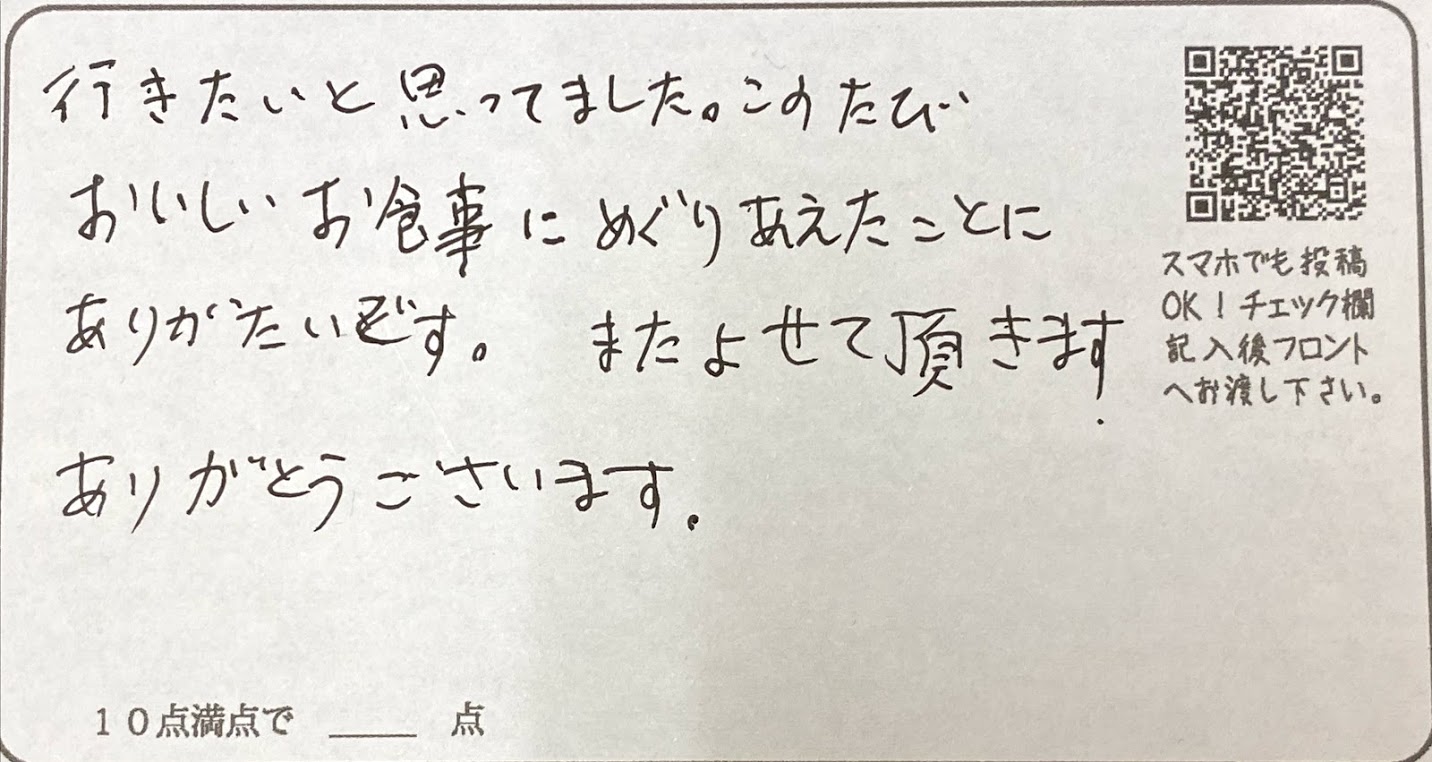 行きたいと思ってました。このたび
おいしいお食事にめぐりあえたことに
ありがたいです。 またよせて頂きます.
ありがとうございます.
スマホでも投稿
OK！チェック欄
記入後フロント
へお渡し下さい。
10点満点で ____ 点